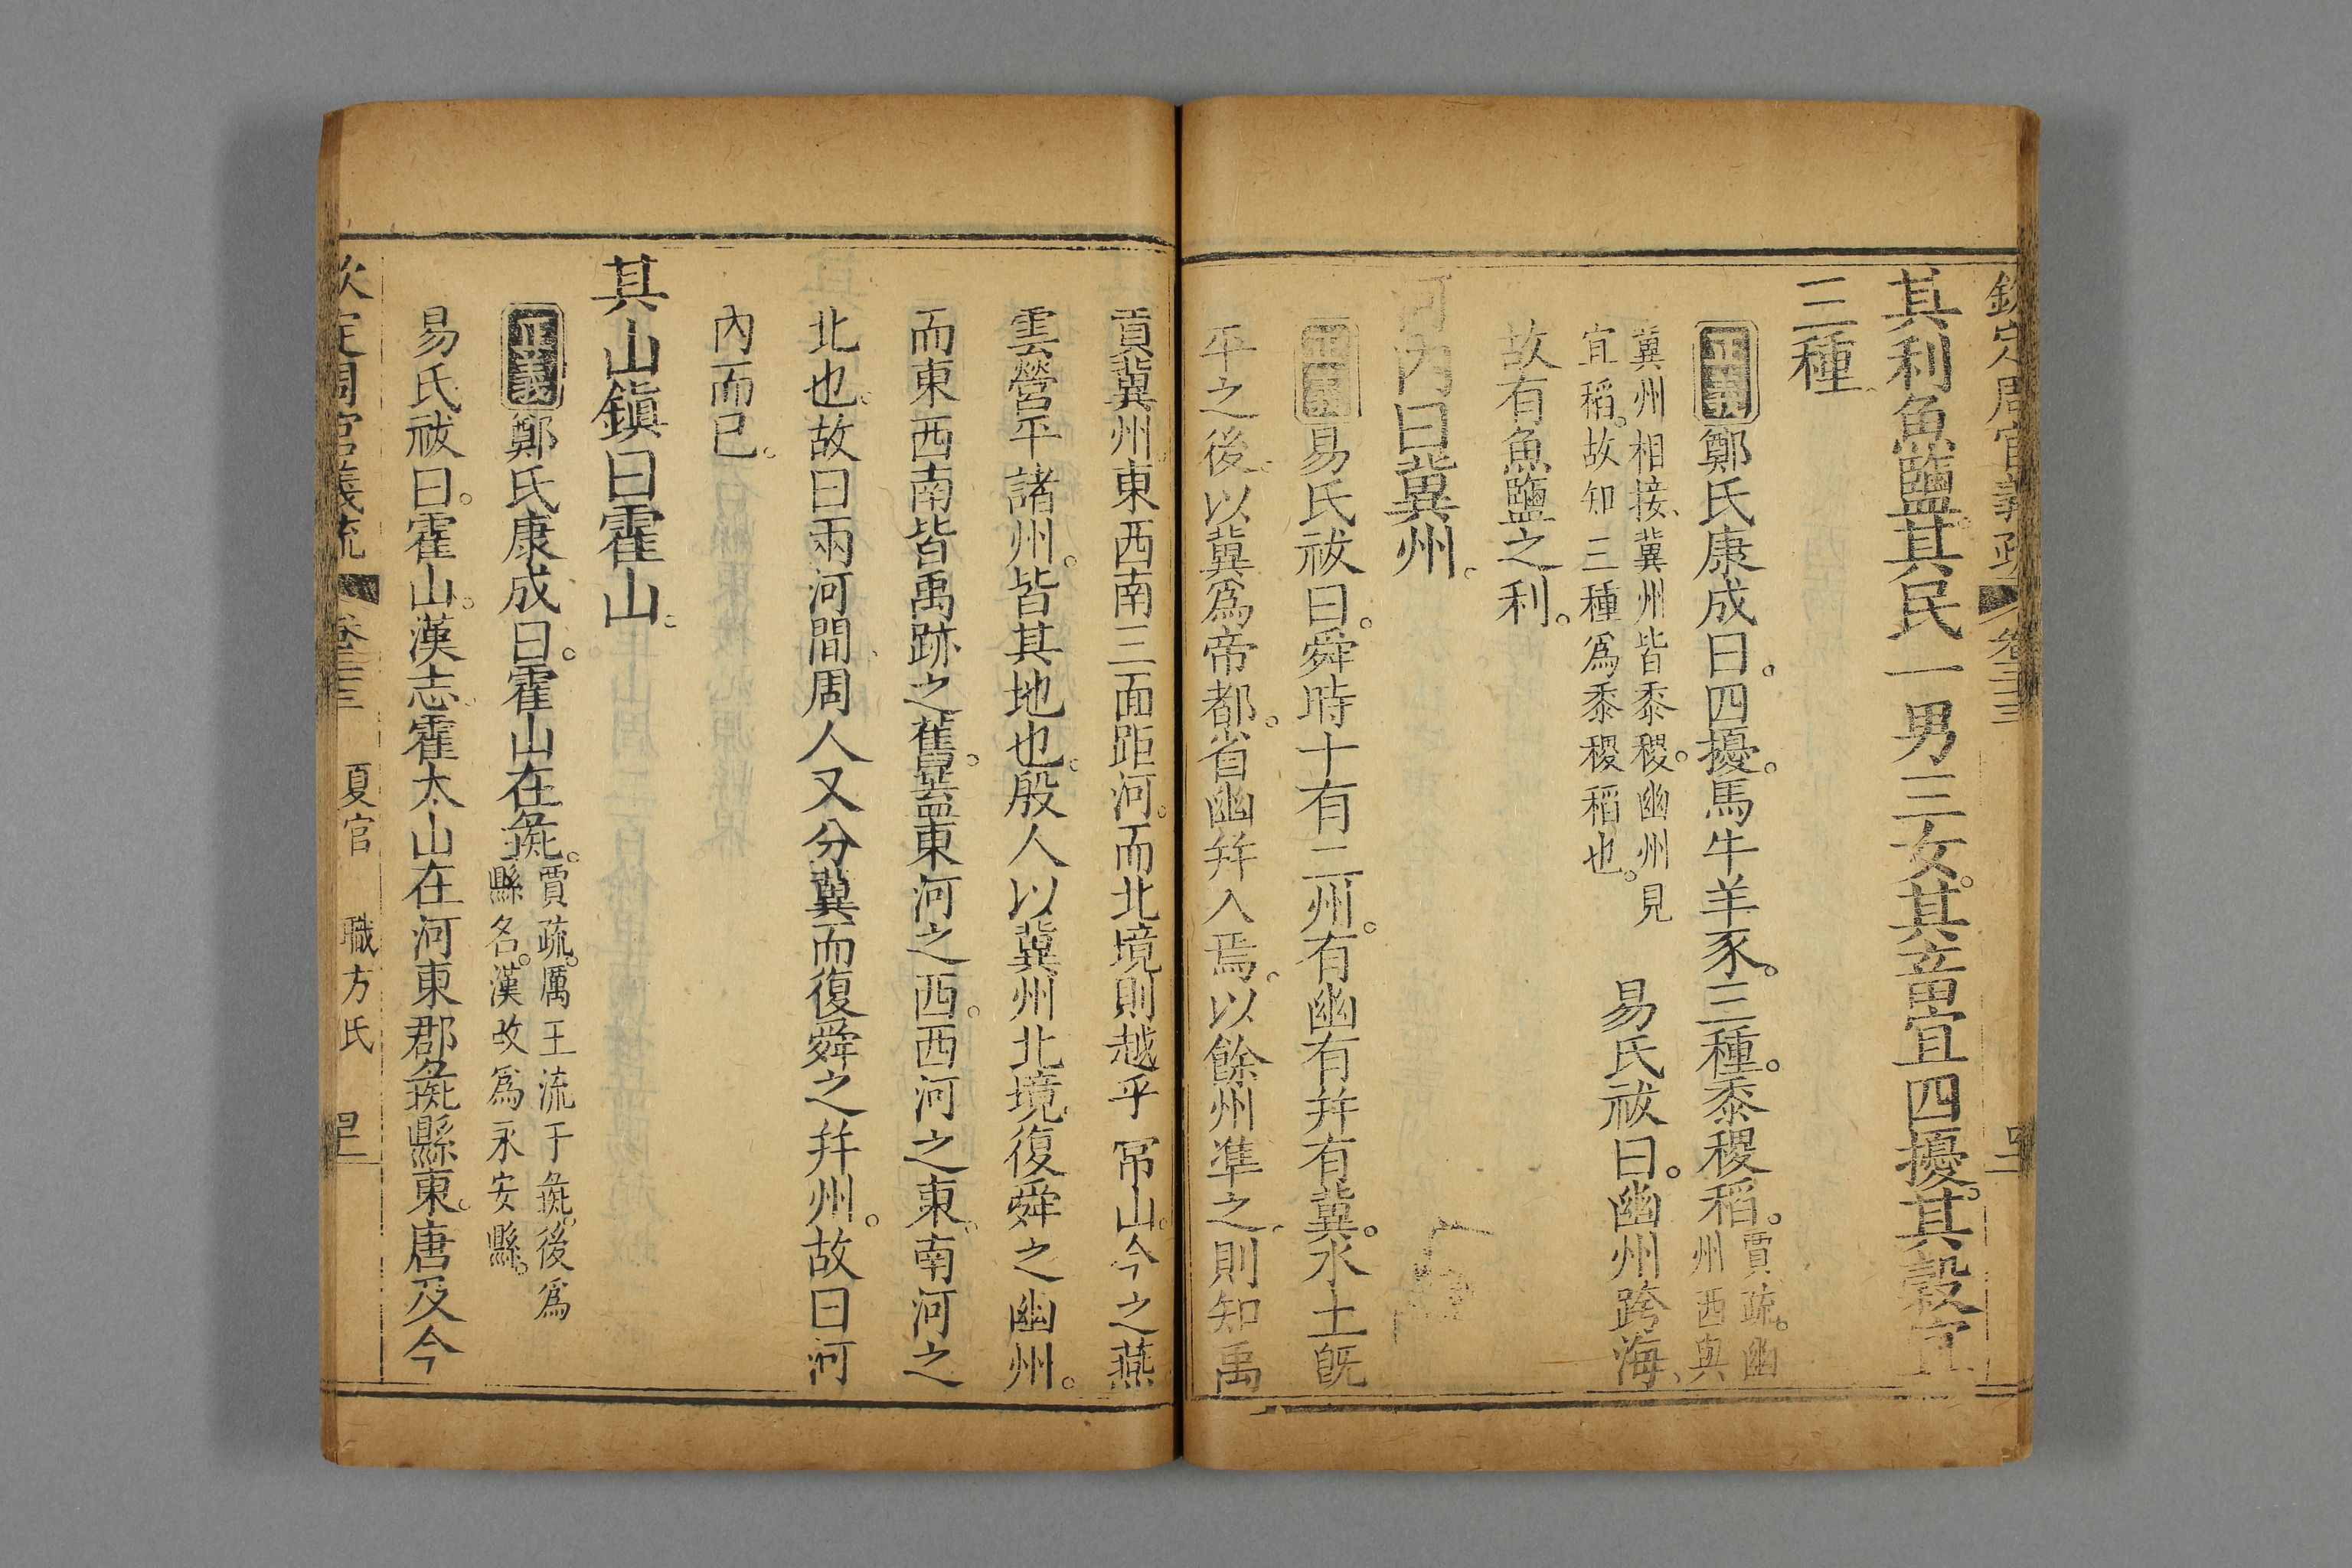 欽定周官義疏 卷三十三
其利魚鹽其民一男三女其畜宜四擾其穀宜
三種
正義鄭氏康成曰四擾馬牛羊豕三種黍稷稻賈疏幽州西與
冀州相接冀州皆黍稷幽州見宜稻故知三種為黍稷稻也 易氏祓曰幽州跨海
故有魚鹽之利
河內曰冀州
正義易氏祓曰舜時十有二州有幽有幷有冀水土既
平之後以冀為帝都省幽幷入焉以餘州準之則知禹
貢冀州東西南三面距河而北境則越乎常山今之燕
雲營平諸州皆其地也殷人以冀州北境復舜之幽州
而東西南皆禹跡之舊冀東河之西西河之東南河之
北也故曰兩河間周人又分冀而復舜之幷州故曰河
內而已
其山鎮曰霍山
正義鄭氏康成曰霍山在彘賈疏厲王流于彘後為縣名漢改為永安縣
易氏祓曰霍山漢志霍太山在河東郡彘縣東唐及今
欽定周官義疏 卷三十三 夏官 職方氏